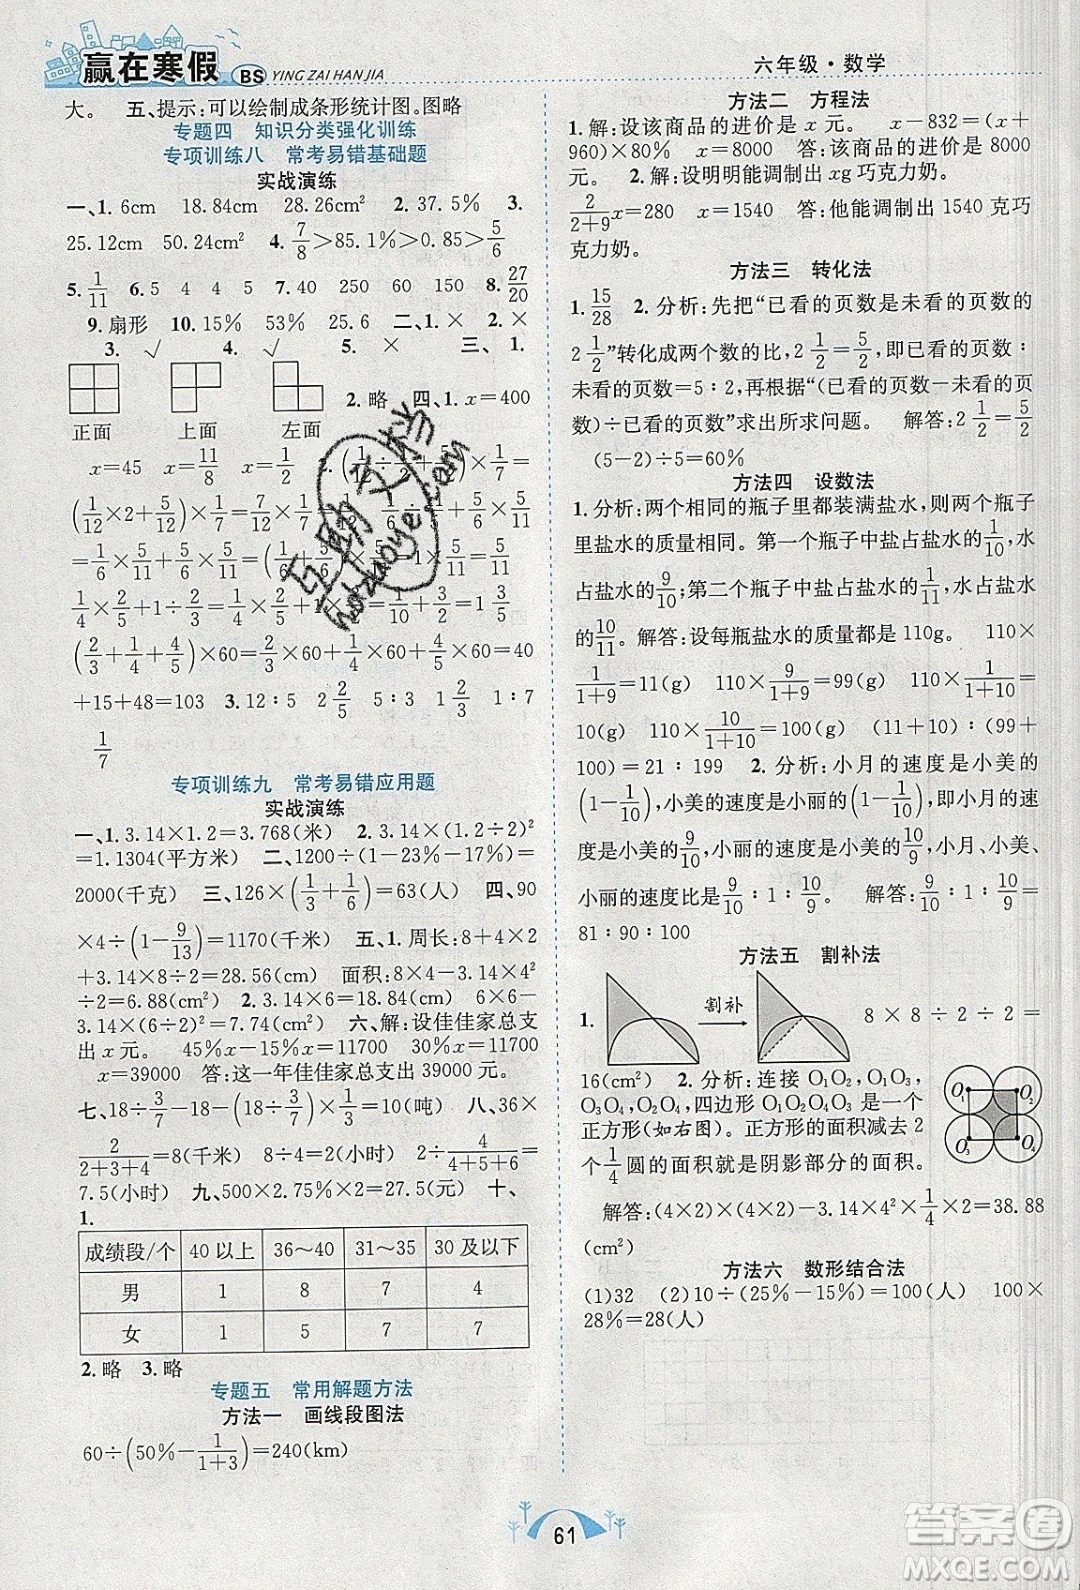 赢在寒假 BS YING ZAI HAN JIA
六年级·数学
大。 五、提示:可以绘制成条形统计图。图略
专题四 知识分类强化训练
专项训练八 常考易错基础题
实战演练
一、1. 6cm 18.84cm 28.26cm² 2. 37.5% 3.
25.12cm 50.24cm² 4. 7/8>85.1%>0.85>5/6
5. 1/11 6. 5 4 7. 40 250 150 8. 27/20
9. 扇形 10. 15% 53% 25.6 二、1. × 2. ×
3. √ 4. √ 5. × 三、1.
2. 略 四、1. x=400
正面 上面 左面
x=45 x=11/8 2. (1/12÷1/2+5/11)×1/7=
(1/12×2+5/11)×1/7=(1/6+5/11)×1/7
=1/6×5/11+5/6×5/11=(1/6+5/6)×5/11=1×5/11=5/11
1/4×2/5+1÷2/3=1/10+1×3/2=1/10+3/2=1 3/5
(2/3+1/4+4/5)×60=2/3×60+1/4×60+4/5×60=40
+15+48=103 3. 12:5 2 2/5 5:3 1 2/3 1:7
1/7
专项训练九 常考易错应用题
实战演练
一、1. 3.14×1.2=3.768(米) 2. 3.14×(1.2÷2)²
=1.1304(平方米) 二、1200÷(1-22%-18%)=
2000(千克) 三、126×(1/3+1/6)=63(人) 四、90
×4÷(1-9/13)=1170(千米) 五、1. 周长:8+4×2
+3.14×4÷2=28.56(cm) 面积:8×4-3.14×4²
÷2=6.88(cm²) 2. 周长:3.14×6=18.84(cm) 6×6-
3.14×(6÷2)²=7.74(cm²) 六、解:设佳佳家总支
出x元。 45%x-15%x=11700 30%x=11700
x=39000 答:这一年佳佳家总支出39000元。
七、18÷3/7-18-(18÷3/7)×1/3=10(吨) 八、36×
2/(2+3+4)=8(千米) 8÷4=2(小时) 2÷4/(4+5+6)=
7.5(小时) 九、500×2.75%×2=27.5(元) 十、
1.
成绩段/个 40以上 36~40 31~35 30及以下
男 1 8 7 4
女 1 5 7 7
2. 略 3. 略
专题五 常用解题方法
方法一 画线段图法
60÷(50%-1/(1+3))=240(km)
方法二 方程法
1. 解:设该商品的进价是x元。 x-832=(x+
960)×80% x=8000 答:该商品的进价是8000
元。 2. 解:设明明能调制出xg巧克力奶。
2/(2+9)x=280 x=1540 答:他能调制出1540克巧
克力奶。
方法三 转化法
1. 15/28 2. 分析:先把“已看的页数是未看的页数的
2 1/2”转化成两个数的比,2 1/2=5/2=已看的页数:
未看的页数=5:2,再根据“(已看的页数-未看的页
数)÷已看的页数”求出所求问题。 解答:2 1/2=5/2
(5-2)÷5=60%
方法四 设数法
1. 分析:两个相同的瓶子里都装满盐水,说明两个瓶子
里盐水的质量相同。第一个瓶子中盐占盐水的1/10,水
占盐水的9/10;第二个瓶子中盐占盐水的1/11,水占盐水
的10/11。解答:设每瓶盐水的质量都是110g。 110×
1/(1+9)=11(g) 110×9/(1+9)=99(g) 110×1/(1+10)=
10(g) 110×10/(1+10)=100(g) (11+10):(99+
100)=21:199 2. 分析:小月的速度是小美的
(1-1/10),小美的速度是小丽的(1-1/10),即小月的速
度是小美的9/10,小丽的速度是小美的10/9,则小月、小美、
小丽的速度比是9/10:1:10/9。 解答:9/10:1:10/9=
81:90:100
方法五 割补法
1.
割补
8×8÷2÷2=
16(cm²) 2. 分析:连接O₁O₂、O₁O₃、
O₃O₄、O₂O₄,四边形O₁O₂O₄O₃是一个
正方形(如右图)。正方形的面积减去2
个1/4圆的面积就是阴影部分的面积。
O₁ O₂ O₃ O₄
解答:(4×2)×(4×2)-3.14×4²×1/4×2=38.88
(cm²)
方法六 数形结合法
(1)32 (2)10÷(25%-15%)=100(人) 100×
28%=28(人)
61
互助文档
hdzuoye.com
答案圈
MXQE.COM